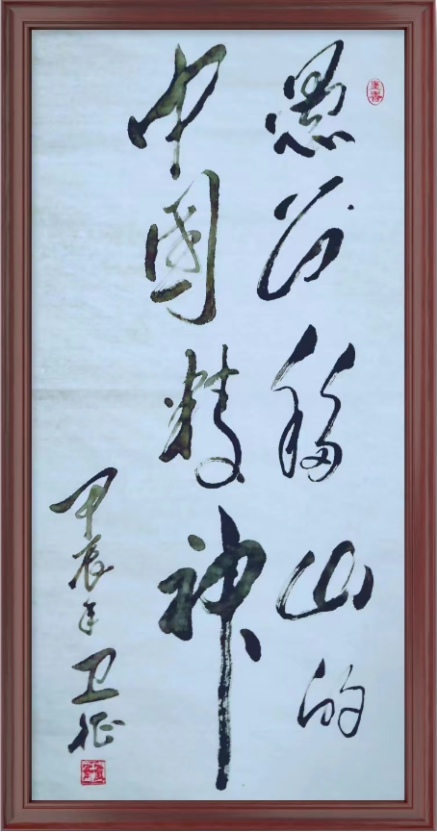 愚公移山的
中国精神
甲辰年卫征